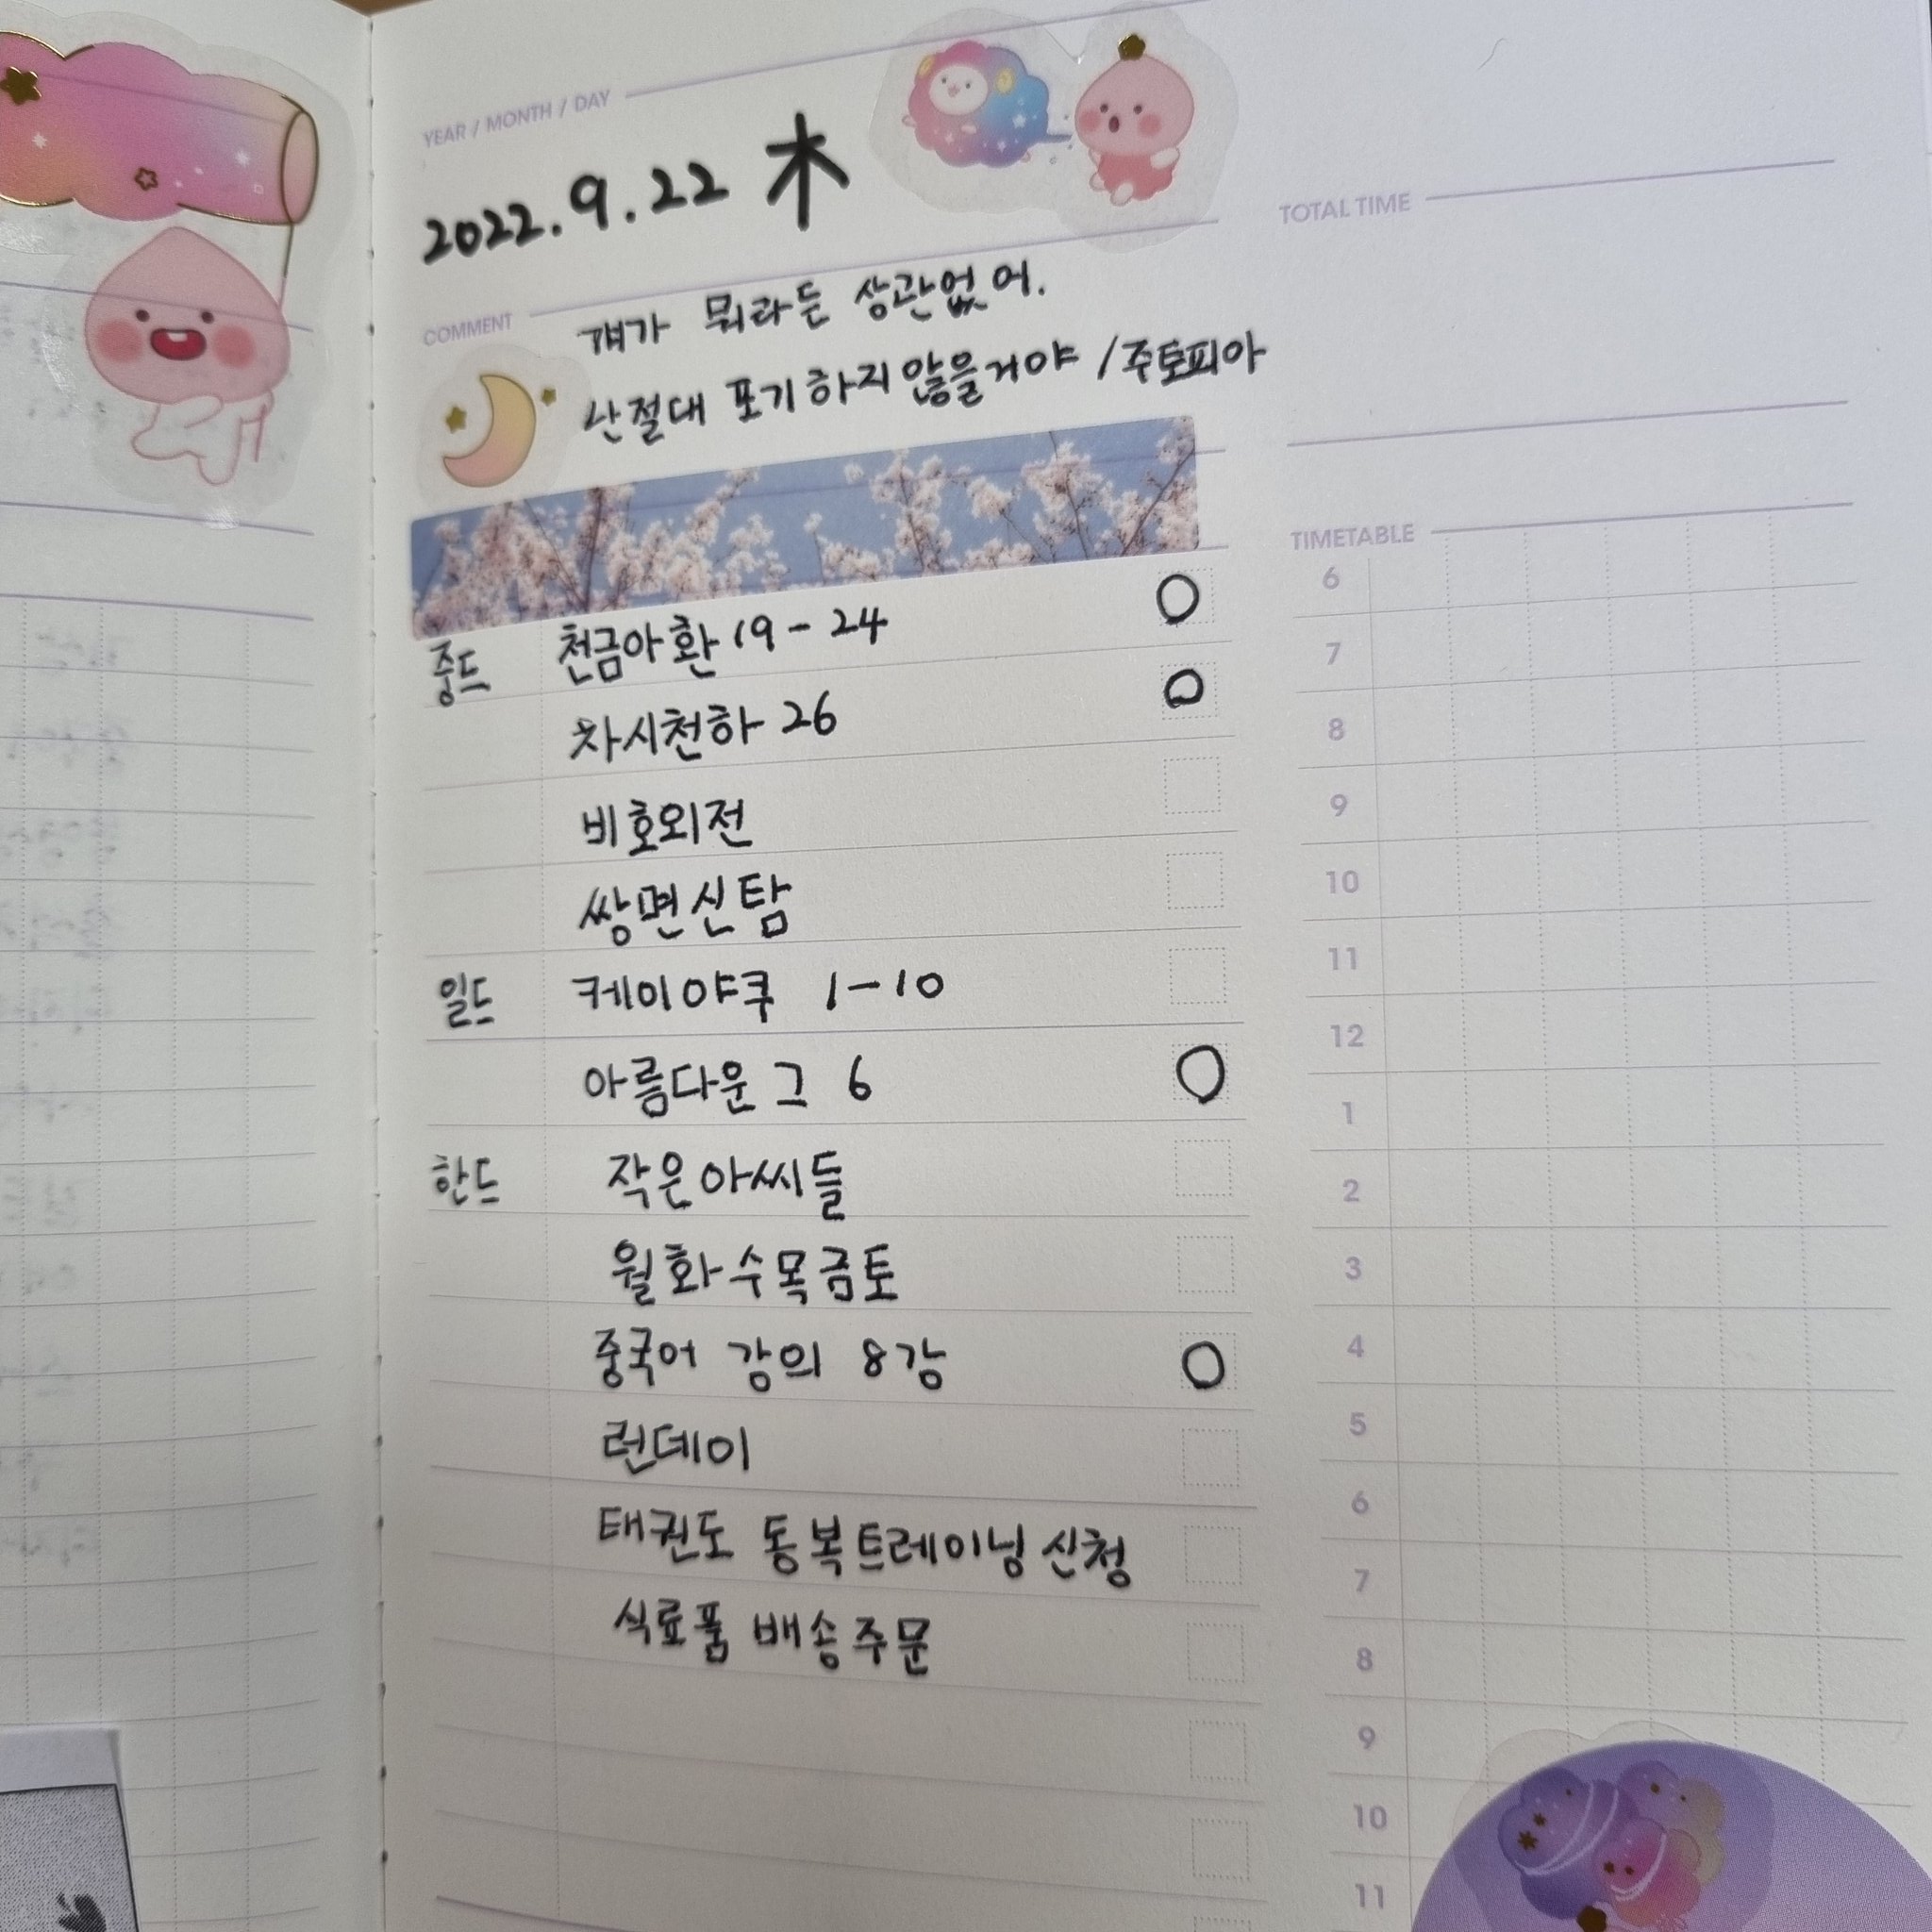 YEAR / MONTH / DAY
2022.9.22 木
COMMENT
걔가 뭐라든 상관없어.
난 절대 포기하지 않을거야 / 주토피아
중드 천금아환 19-24 O
차시천하 26 O
비호외전
쌍면신탐
일드 케이야쿠 1-10
아름다운 그 6 O
한드 작은아씨들
월화수목금토
중국어 강의 8강 O
런데이
태권도 동복트레이닝 신청
식료품 배송주문
TOTAL TIME
TIMETABLE
6
7
8
9
10
11
12
1
2
3
4
5
6
7
8
9
10
11